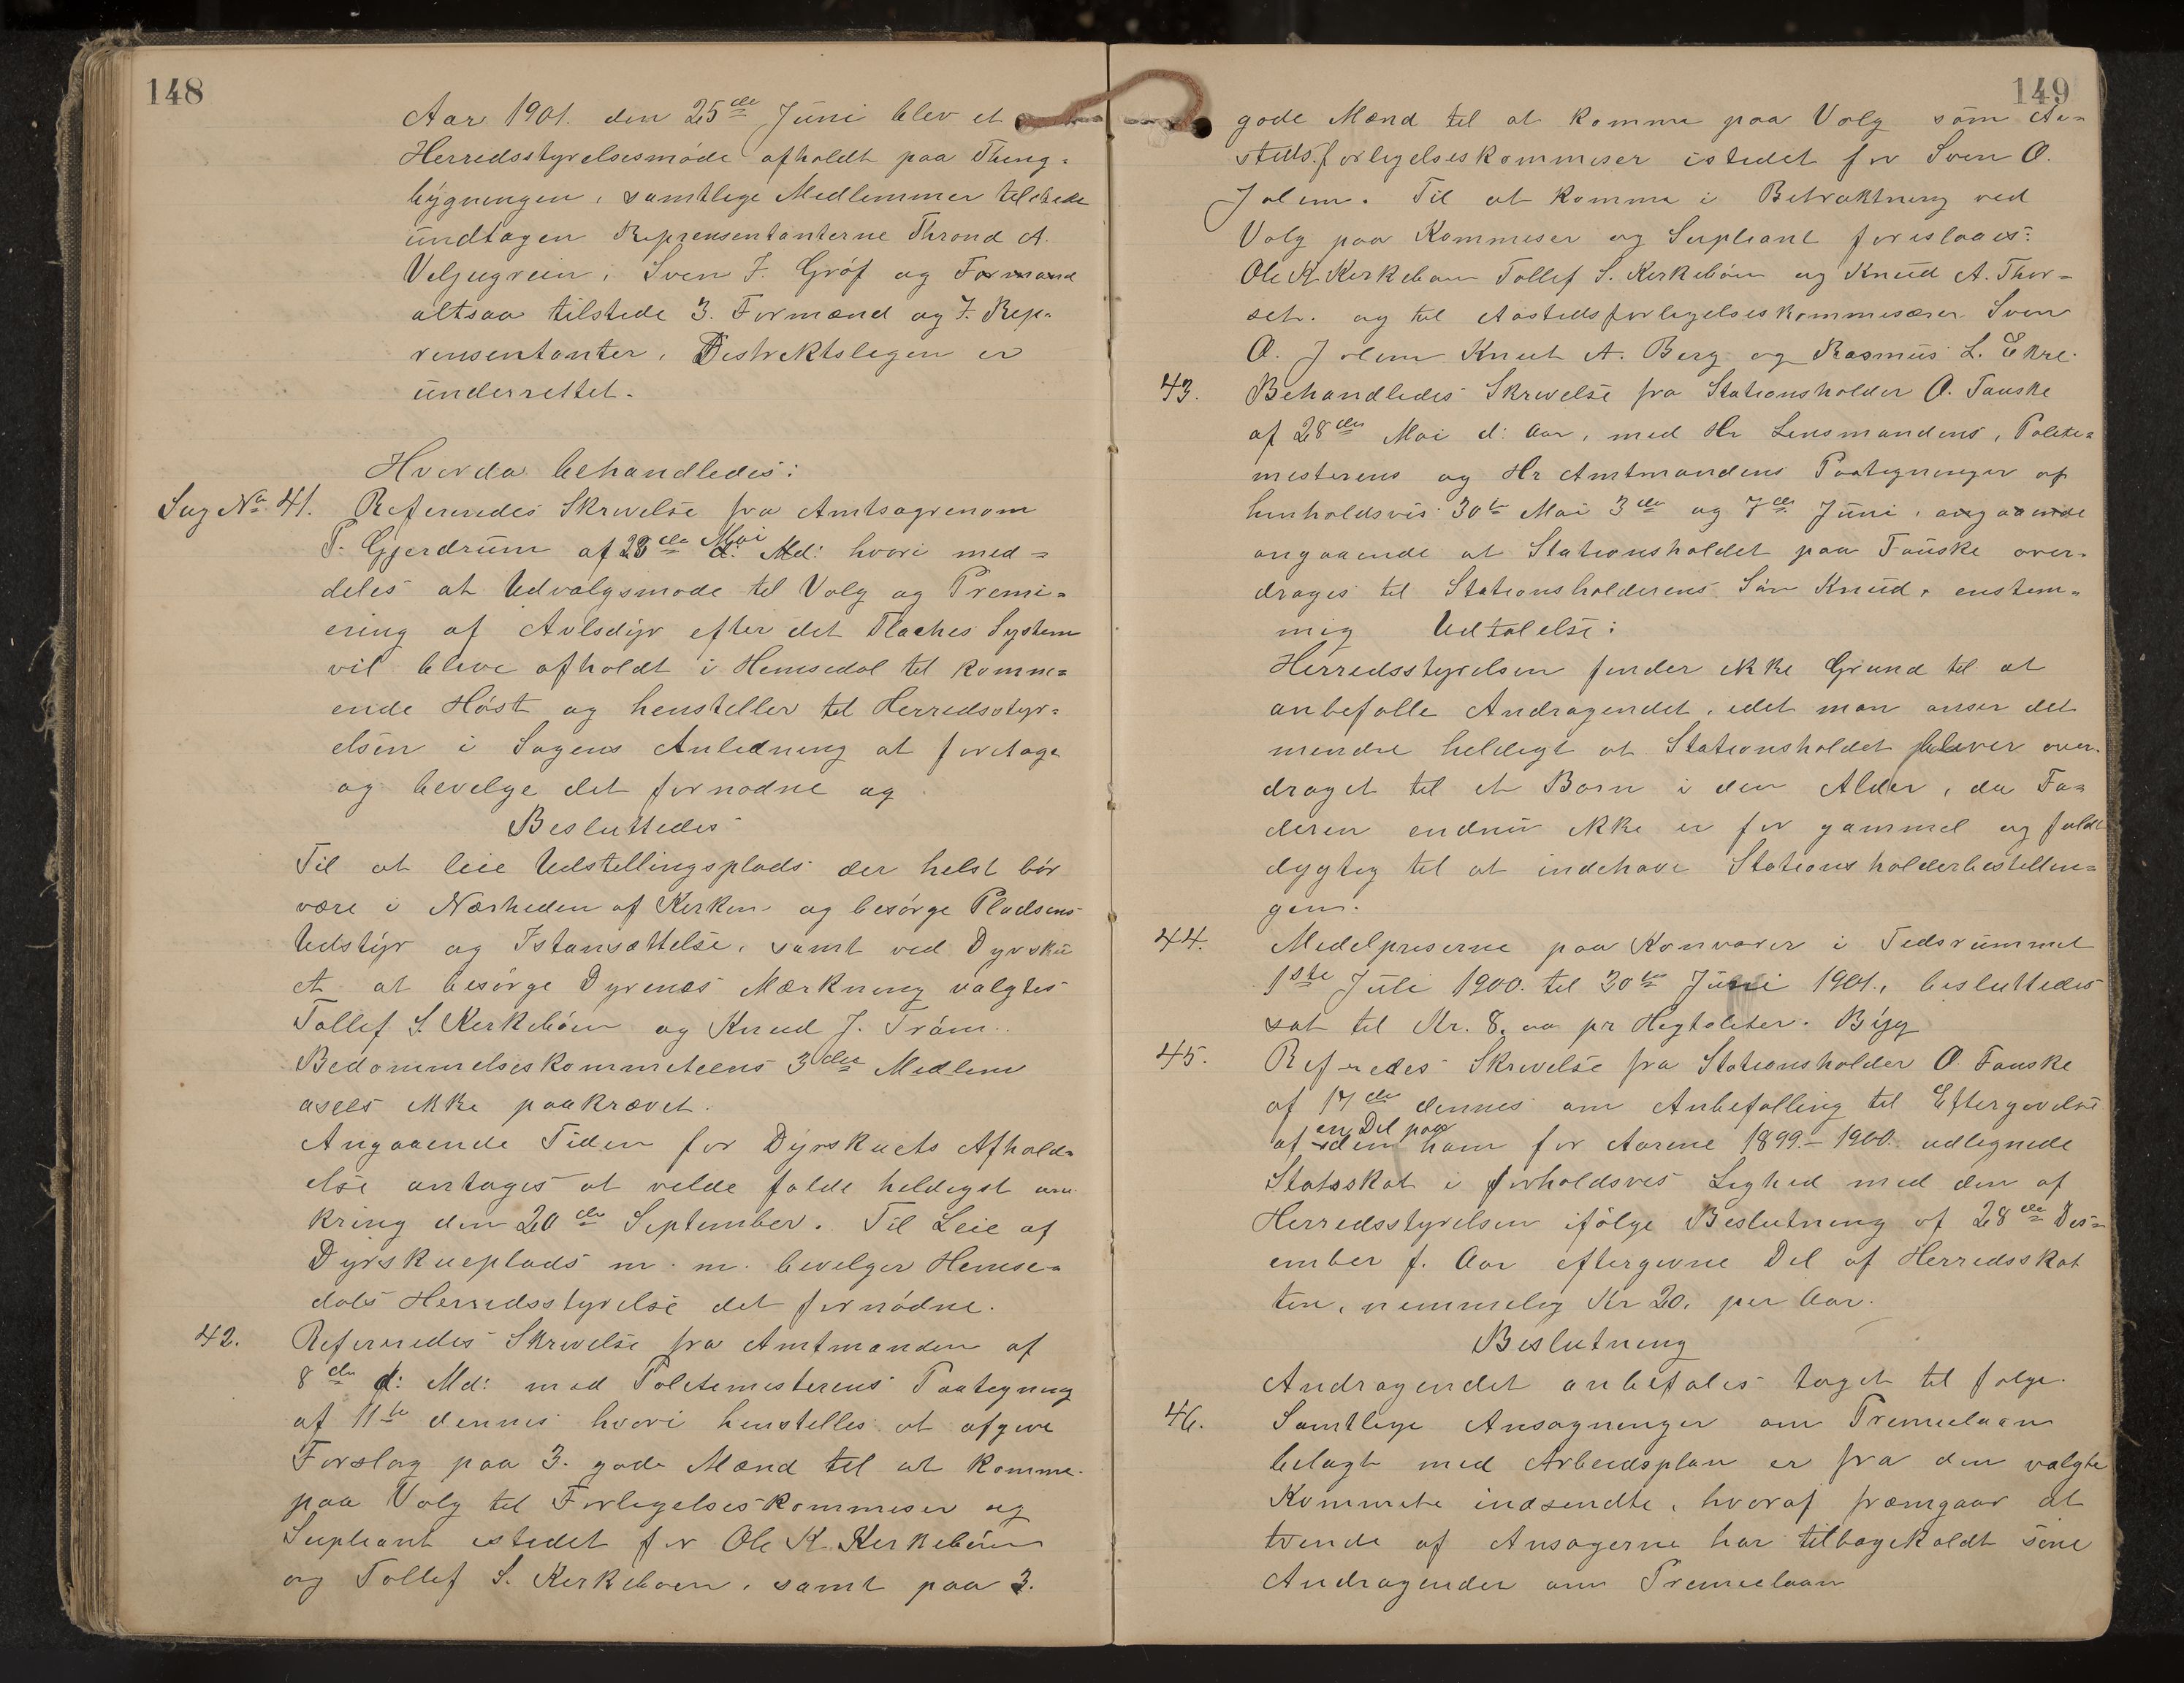 148
Aar 1901. den 25de Juni blev et
Herredsstyrelsesmöde afholdt paa Thing-
bygningen, samtlige Medlemmer tilstede
undtagen Repræsentanterne Thrond A.
Veljugrein, Sven J. Gróf og Formand
altsaa tilstede 3. Formænd og 7. Rep-
rensentanter, Distriktslegen er
underrettet.
Hvorda behandledes:
Sag No 41. Refereredes Skrivelse fra Amtsagronom
T. Gjerdrum af 23de Mai d: Md: hvori med-
deles at Udvalgsmøde til Valg og Premi-
ering af Avlsdyr efter det Flaches System
vil blive afholdt i Hemsedal til komm-
ende Höst og henstiller til Herredsstyr-
elsen i Sagens Anledning at foretage
og bevilge det fornødne og
Besluttedes
Til at leie Udstillingsplads der helst bör
være i Nærheden af Kirken og besörge Pladsens
Udstyr og Istansættelse, samt ved Dyrsku
et at besörge Dyrenes Mærkning valgtes
Tollef S. Kirkebóen og Knud J. Tröim.
Bedømmelseskommiteens 3die Medlem
asees ikke paakrævet.
Angaaende Tiden for Dyrskuets Afhold-
else antages at vilde falde heldigst om-
kring den 20de September. Til Leie af
Dyrskueplads m. m. bevilger Hemse-
dals Herredsstyrelse det fornódne.
42. Refereredes Skrivelse fra Amtmanden af
8de d: Md: med Politimesterens Paategning
af 11te dennes hvori henstilles at afgive
Forslag paa 3. gode Mænd til at komme
paa Valg til Forligelseskommisær og
Supleant istedet for Ole K. Kirkebóen
og Tollef S. Kirkeboen, samt paa 3.
149
gode Mænd til at komme paa Valg som Aa-
stedsforligelseskommisær istedet for Sven O.
Jolem. Til at komme i Betraktning ved
Valg paa Kommisær og Supleant foreslaaes:
Ole K. Kirkeboen Tollef S. Kirkebóen og Knud A. Thor-
set. og til Aastedsforligelseskommisærer Sven
O. Jolem Knut A. Berg og Rasmus L. Ekre.
43. Behandledes Skrivelse fra Stationsholder O. Fauske
af 28de Mai d: Aar, med Hr Lensmandens, Politi-
mesterens og Hr Amtmandens Paategninger af
henholdsvis 30te Mai 3de og 7de Juni, angaaende
angaaende at Stationsholdet paa Fauske over-
drages til Stationsholderens Sön Knud, enstem-
mig Udtalelse:
Herredsstyrelsen finder ikke Grund til at
anbefalle Andragendet, idet man anser det
mindre heldigt at Stationsholdet bliver over-
draget til et Barn i den Alder, da Fa-
deren endnu ikke er for gammel og fuldt
dygtig til at indehave Stationsholderbestillin-
gen.
44. Medelpriserne paa Kornvarer i Tidsrummet
1ste Juli 1900. til 30te Juni 1901., besluttedes
sat til Kr. 8. oo pr Hegtoliter. Byg
45. Refredes Skrivelse fra Stationsholder O. Fauske
af 17de dennes om Anbefalling til Eftergivelse
af en Del paa dem ham for Aarene 1899.-1900. udlignede
Statsskat i forholdsvis Lighed med den af
Herredsstyrelsen ifölge Beslutning af 28de Des-
ember f. Aar eftergivne Del af Herredsskat
ten, nemmelig Kr 20. per Aar.
Beslutning
Andragendet anbefales taget til følge.
46. Samtlige Ansøgninger om Premielaan
belagt med Arbeidsplan er fra den valgte
Kommite indsendte, hvoraf fræmgaar at
tvende af Ansøgerne har tilbagekaldt sine
Andragender om Premielaan